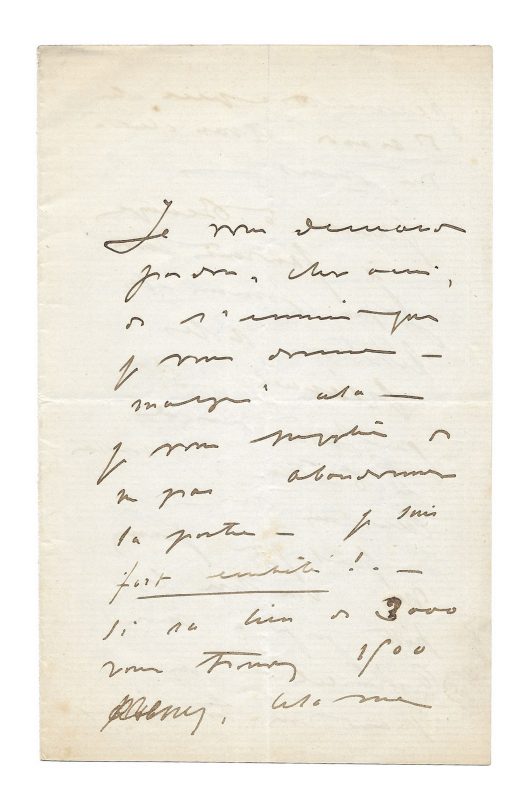 Je vous demande
pardon, cher ami,
de l'ennui que
je vous donne –
malgré cela –
je vous supplie de
ne pas abandonner
la partie – je suis
fort embêté !. –
Si au lieu de 3000
vous trouvez 1500
, cela me